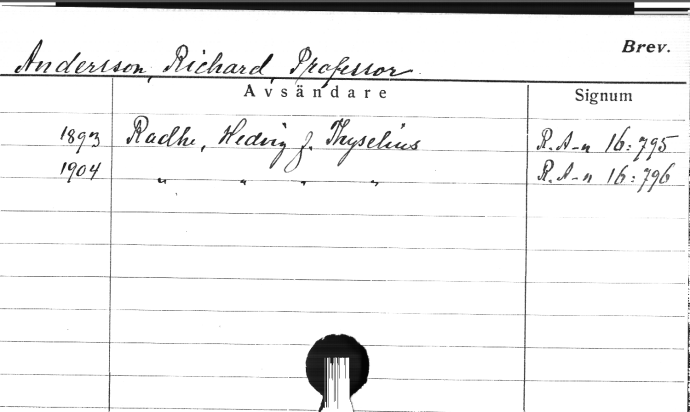 Brev.
Andersson, Richard, Professor.
Avsändare Signum
1893 Radhe, Hedvig f. Thyselius R.A-n 16:795
1904 " " " " R.A-n 16:796